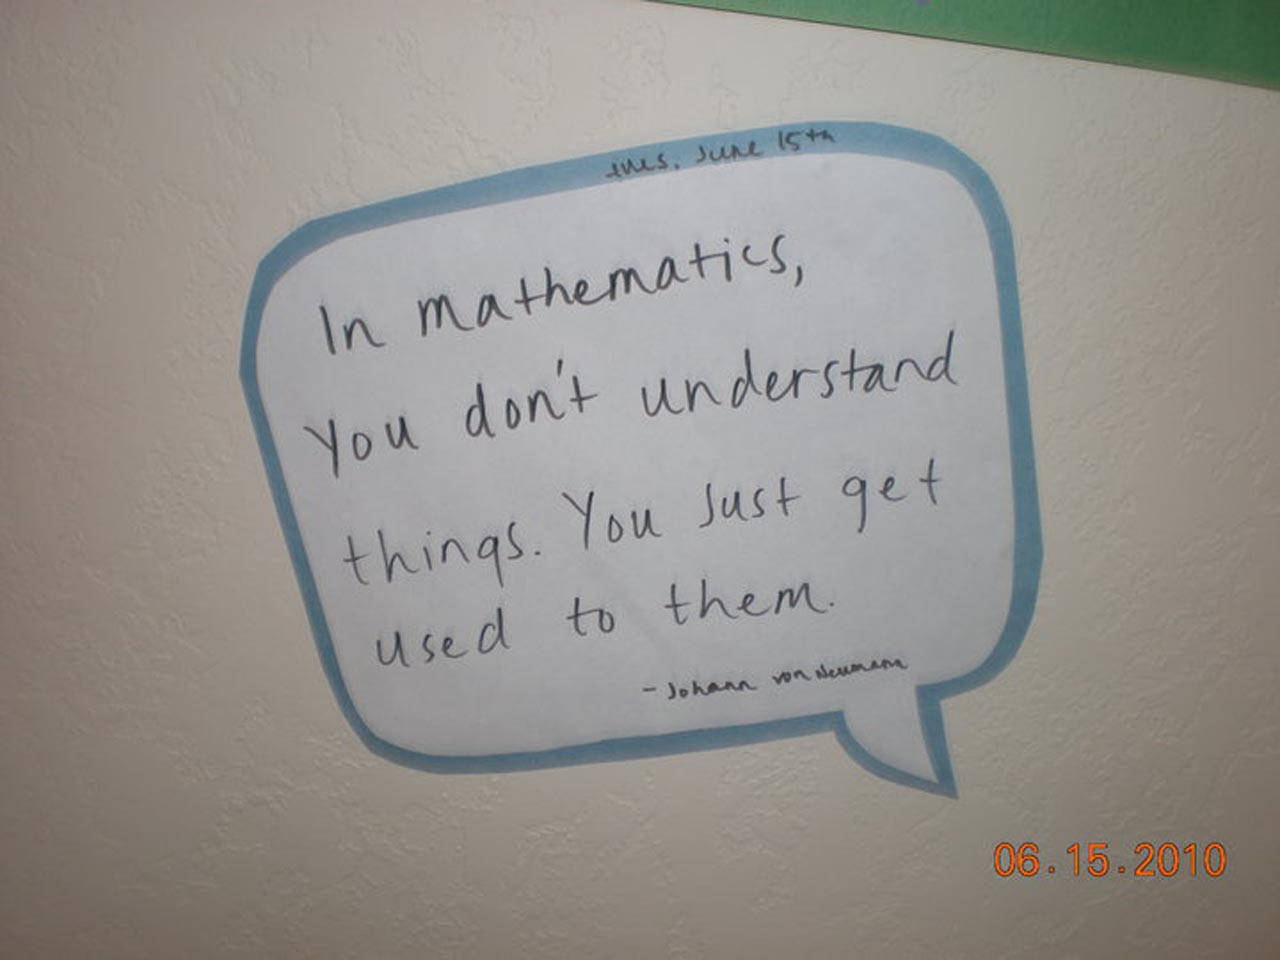 tues. June 15th
In mathematics,
you don't understand
things. You just get
used to them.
- Johann von Neumann
06.15.2010